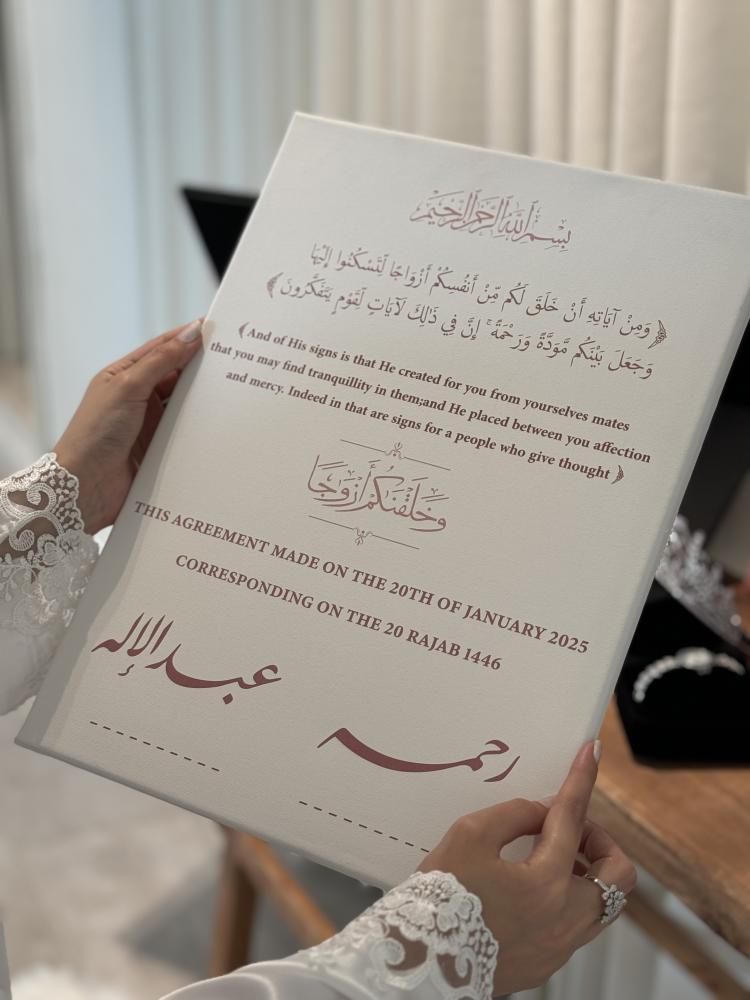 بسم الله الرحمن الرحيم
﴿ وَمِنْ آيَاتِهِ أَنْ خَلَقَ لَكُم مِّنْ أَنفُسِكُمْ أَزْوَاجًا لِّتَسْكُنُوا إِلَيْهَا
وَجَعَلَ بَيْنَكُم مَّوَدَّةً وَرَحْمَةً ۚ إِنَّ فِي ذَٰلِكَ لَآيَاتٍ لِّقَوْمٍ يَتَفَكَّرُونَ ﴾
﴾And of His signs is that He created for you from yourselves mates
that you may find tranquillity in them;and He placed between you affection
and mercy. Indeed in that are signs for a people who give thought ﴿
وَخَلَقْنَاكُمْ أَزْوَاجًا
THIS AGREEMENT MADE ON THE 20TH OF JANUARY 2025
CORRESPONDING ON THE 20 RAJAB 1446
عبدالإله
رحمه